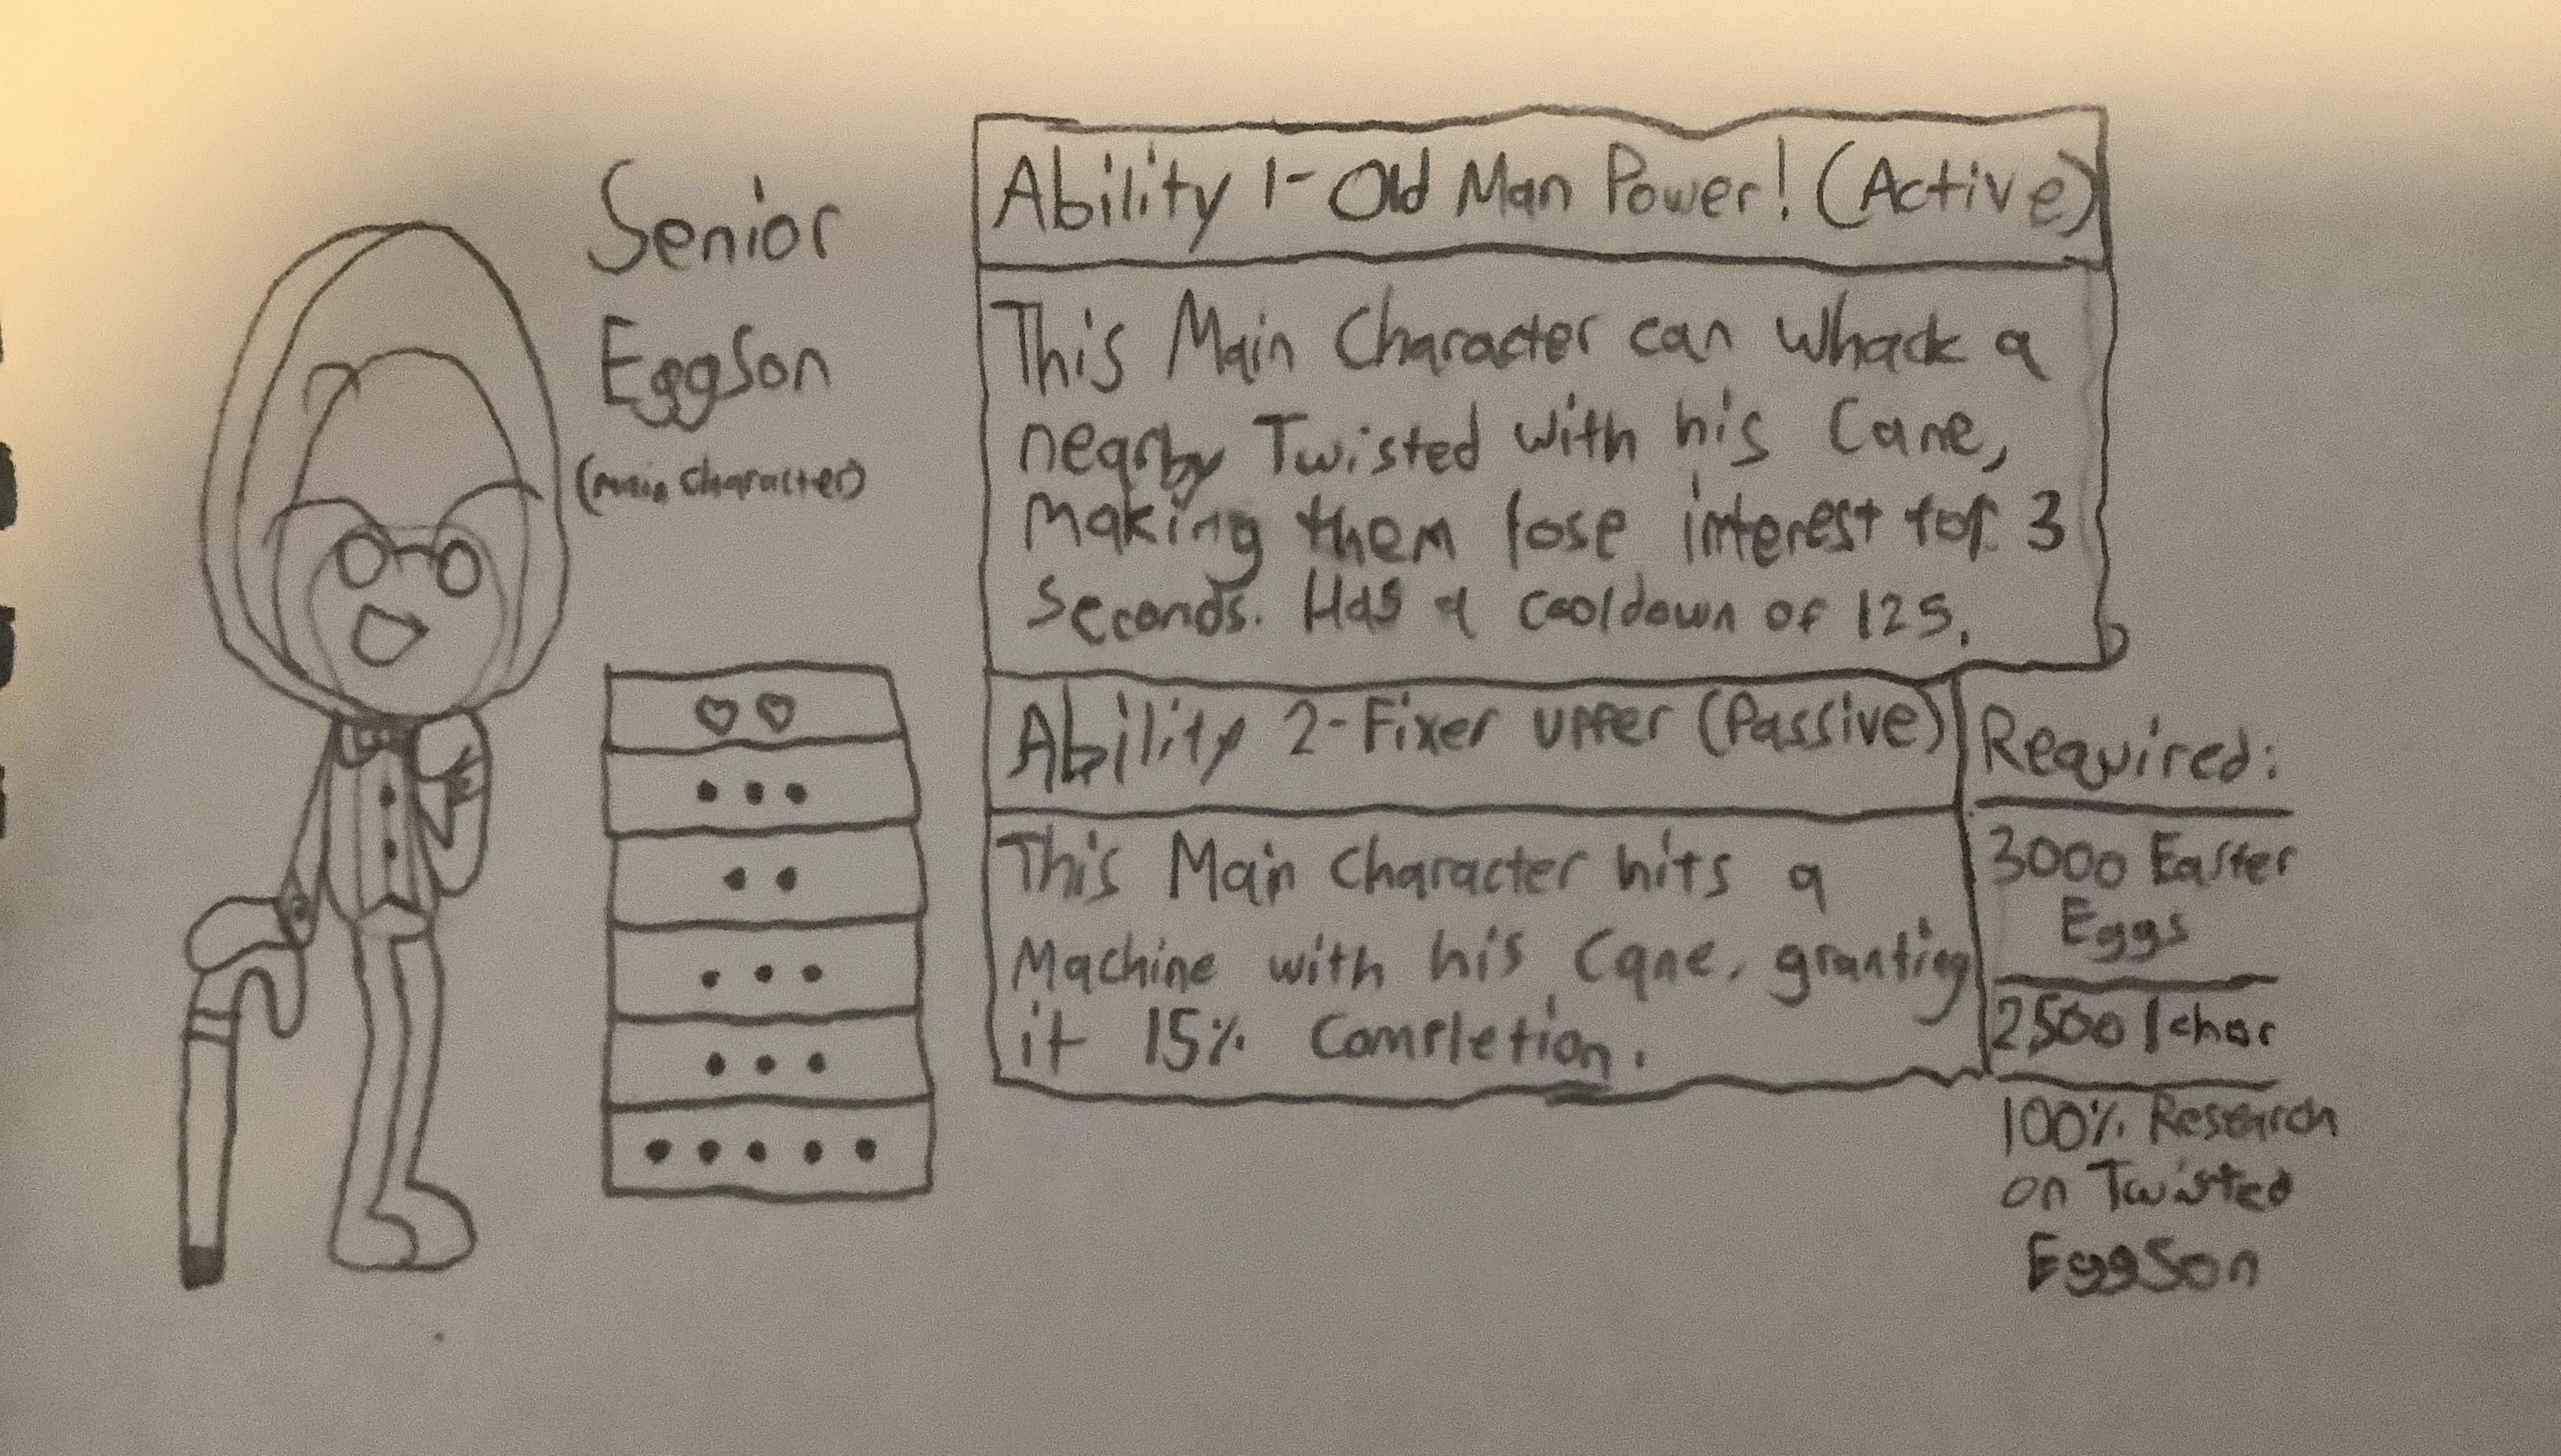 Senior
EggSon
(main character)
Ability 1- Old Man Power! (Active)
This Main Character can whack a
nearby Twisted with his Cane,
making them lose interest for 3
seconds. Has a cooldown of 125.
Ability 2-Fixer upper (Passive)
This Main Character hits a
Machine with his Cane, granting
it 15% Completion.
Required:
3000 Easter
Eggs
2,500 Ichor
100% Research
on Twisted
EggSon